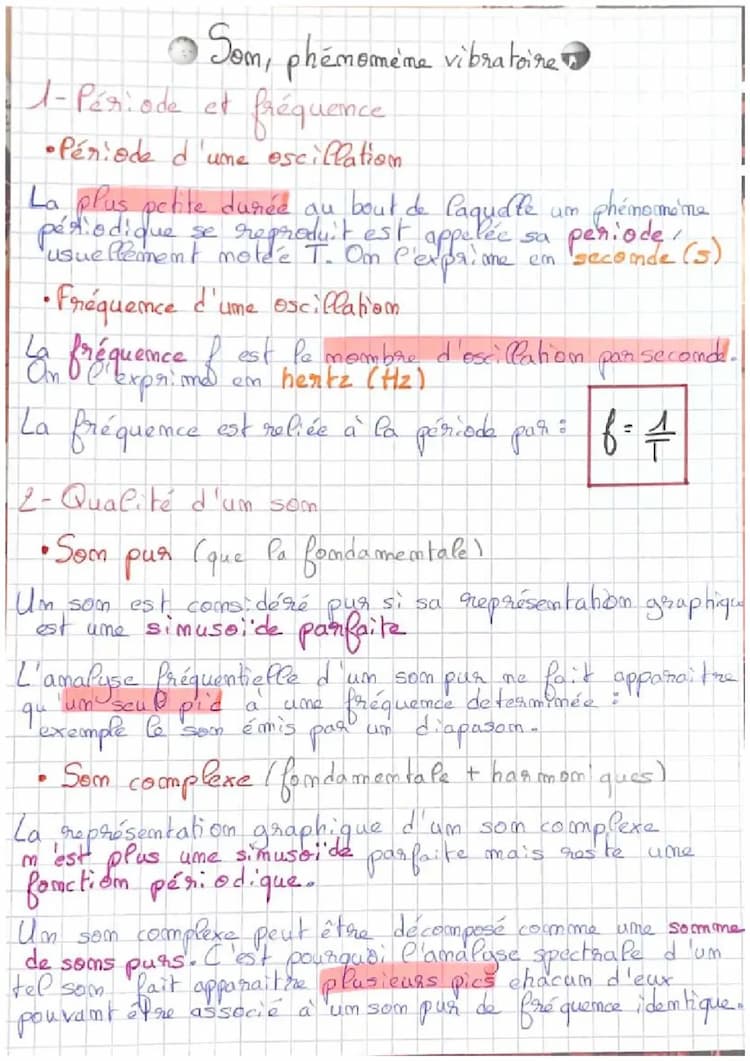 Son, phénomène vibratoire
1-Période et fréquence
•Période d'une oscillation
La plus petite durée au bout de laquelle un phénomène
périodique se reproduit est appelée sa periode,
usuellement notée T. On l'exprime en seconde (s)
•Fréquence d'une oscillation
La fréquence f est le nombre d'oscillation par seconde.
On l'exprime en hertz (Hz)
La fréquence est reliée à la période par : f = 1/T
2-Qualité d'un son
•Son pur (que la fondamentale)
Un son est considéré pur si sa représentation graphique
est une sinusoïde parfaite
L'analyse fréquentielle d'un son pur ne fait apparaitre
qu'un seul pic à une fréquence determinée :
exemple le son émis par un diapason.
• Son complexe (fondamentale + harmoniques)
La représentation graphique d'un son complexe
n'est plus une sinusoïde parfaite mais reste une
fonction périodique.
Un son complexe peut être décomposé comme une somme
de sons purs. C'est pourquoi l'analyse spectrale d'un
tel son fait apparaitre plusieurs pics chacun d'eux
pouvant être associé à un son pur de fréquence identique.